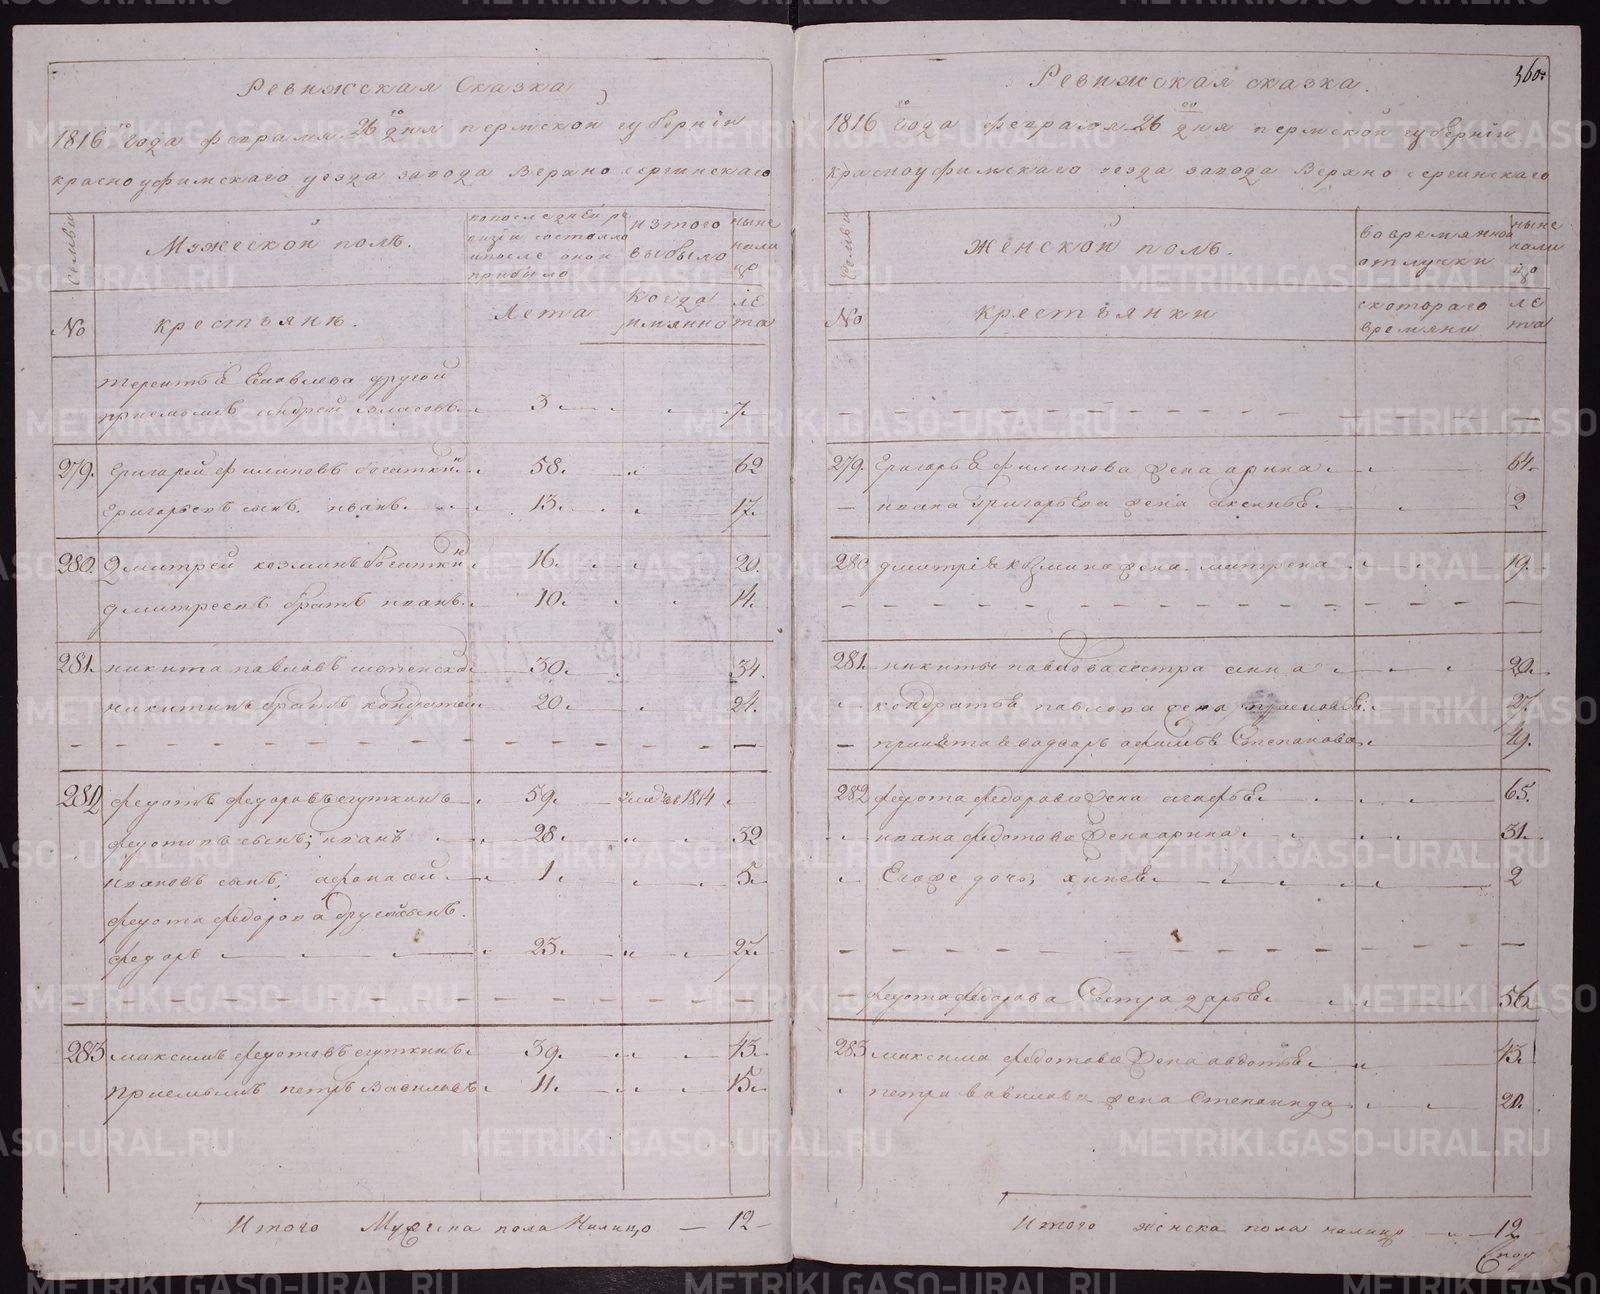 Ревижская Сказка
1816 го Года февраля 26 го дня пермской губернiи
красноуфимскаго уезда завода Верхно сергинскаго
семьи
Мужеской полъ.
попоследней ре
визiи состояло
ипосле оной
прибыло
изтого
выбыло
ныне
нали
цо
No
крестьянъ.
Лета
Когда
имянно
ле
та
терентьѣ Яковлева другой
приемышъ андрей власовъ 3 7
279. Григорей филиповъ богаткинъ 58. 62
Григорьевъ сынъ. иванъ. 13. 17.
280. Дмитрей козминъ богаткинъ 16. 20.
дмитреевъ братъ иванъ. 10. 14.
281. никита павловъ 30. 34.
никитинъ братъ кондратей 20 24.
282 федотъ федоровъ сгуткинъ 59. 1814
федотовъ сынъ; иванъ 28 32
ивановъ сынъ; афонасей 1. 5.
федота федорова другой сынъ.
федоръ 23. 27.
283 максимъ федотовъ сгуткинъ. 39. 43.
приемышъ петръ Вавиловъ 11. 15.
Итого Мужеска пола Налицо — 12
Ревижская сказка.
360.
1816 го Года февраля 26 го дня пермской губернiи
красноуфимскаго уезда завода Верхно сергинскаго
Семьи
Женской полъ.
вовремянной
отлучки
ныне
нали
цо
No
крестьянки
скотораго
времяни
ле
та
279. Григорьѣ филипова жена арина. 61.
— ивана Григорьева жена аксинья 2
280 дмитрiя козмина жена. матрена 19.
281. никиты павлова сестра анна 20.
кондратья павлова жена 27.
— принята вводворъ афимья Степанова 49.
282 федота федорова жена агафья 65.
ивана федотова жена арина. 31.
Егоже дочь, хинея 2
федота федорова Сестра дарья 56.
283 максима федотова жена авдотья 43.
петра вавилова жена Степанида 20.
Итого женска пола налицо — 12